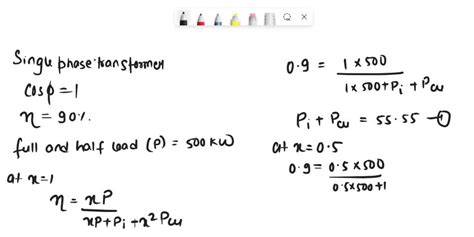 Single phase transformer
cosϕ = 1
η = 90%.
full and half load (P) = 500 kW
at x=1
η = xP / xP + Pi + x²Pcu
0.9 = 1 × 500 / 1 × 500 + Pi + Pcu
Pi + Pcu = 55.55 —①
at x = 0.5
0.9 = 0.5 × 500 / 0.5 × 500 + 1